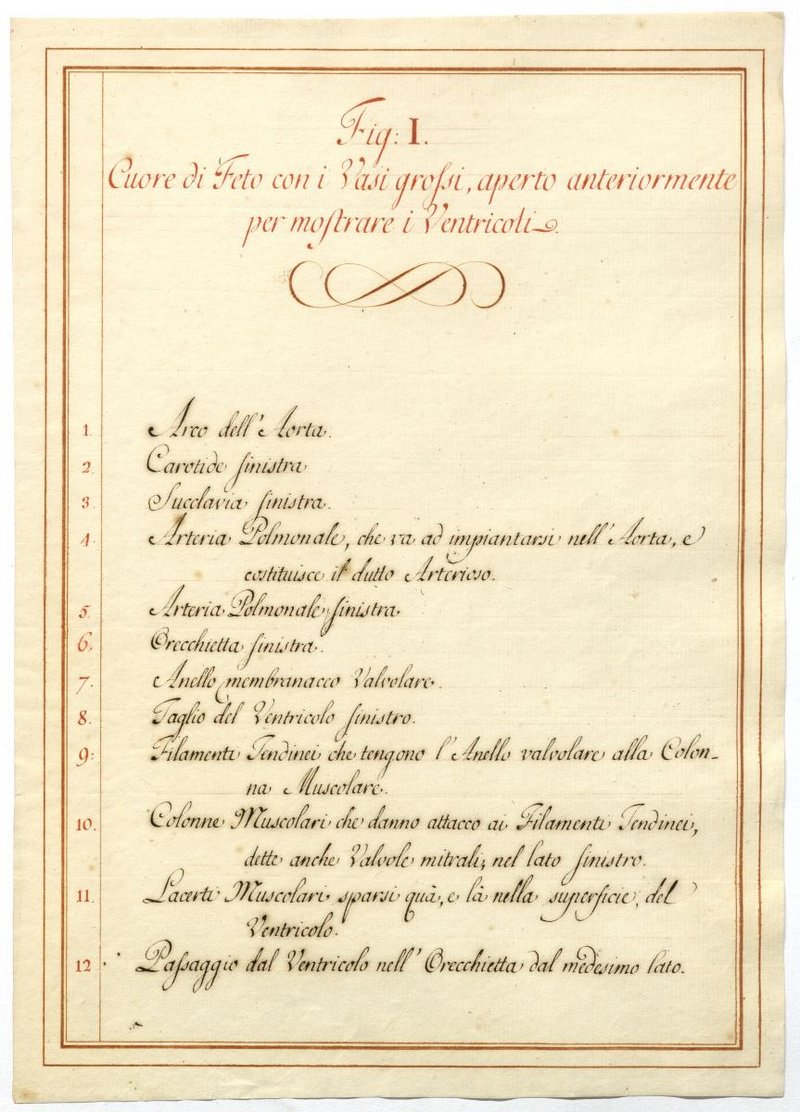 Fig: I.
Cuore di Feto con i Vasi grossi, aperto anteriormente
per mostrare i Ventricoli.
1. Arco dell'Aorta.
2. Carotide sinistra
3. Succlavia sinistra.
4. Arteria Polmonale, che va ad impiantarsi nell'Aorta, e
costituisce il dutto Arterioso.
5. Arteria Polmonale sinistra.
6. Orecchietta sinistra.
7. Anello membranaceo Valvolare.
8. Taglio del Ventricolo sinistro.
9: Filamenti Tendinei che tengono l'Anello valvolare alla Colon-
na Muscolare.
10. Colonne Muscolari che danno attacco ai Filamenti Tendinei,
dette anche Valvole mitrali; nel lato sinistro.
11. Lacerti Muscolari sparsi quà, e là nella superficie, del
Ventricolo.
12. Passaggio dal Ventricolo nell'Orecchietta dal medesimo lato.